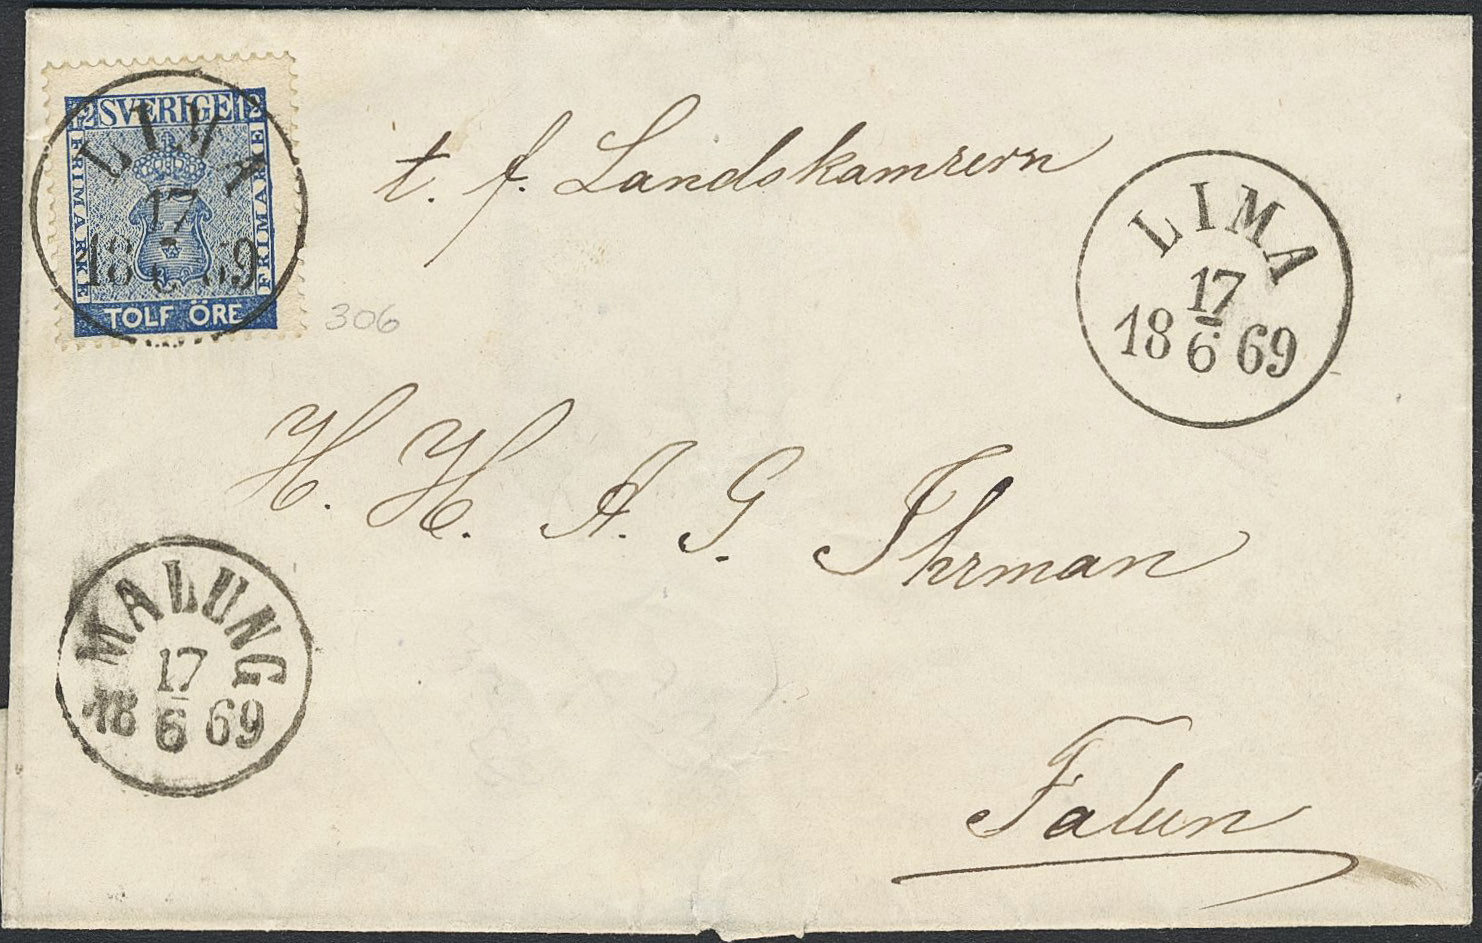 12 SVERIGE 12
FRIMÄRKE
FRIMÄRKE
TOLF ÖRE
LIMA
17
18 6 69
306
t. f. Landskamrern
LIMA
17
18 6 69
H. H. A. G. Ihrman
MALUNG
17
18 6 69
Falun